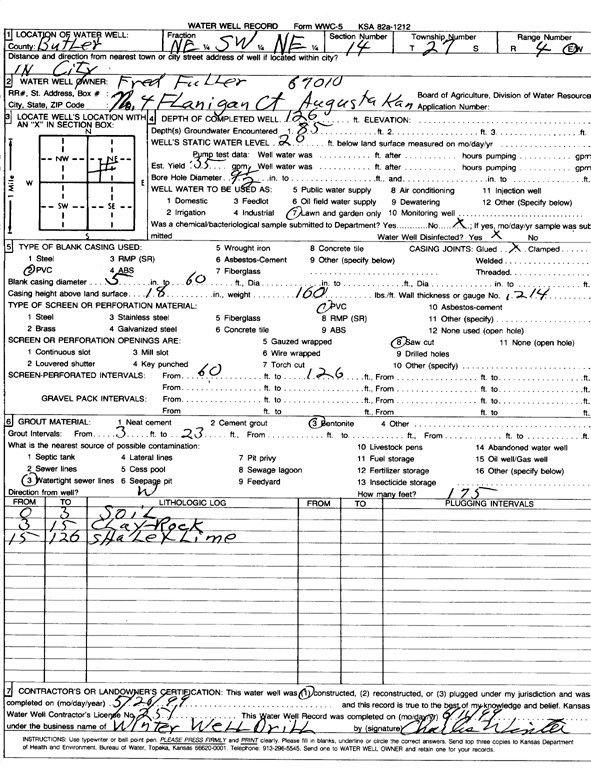 WATER WELL RECORD Form WWC-5 KSA 82a-1212
1 LOCATION OF WATER WELL: Fraction Section Number Township Number Range Number
County: Butler NE ¼ SW ¼ NE ¼ 14 T 27 S R 4 E/W
Distance and direction from nearest town or city street address of well if located within city?
IN City
2 WATER WELL OWNER: Fred Fuller 67010
RR#, St. Address, Box # : Board of Agriculture, Division of Water Resource
City, State, ZIP Code : No. 4 Flanigan Ct Augusta Kan Application Number:
3 LOCATE WELL'S LOCATION WITH AN "X" IN SECTION BOX:
N
NW NE
W E
SW SE
S
1 Mile
4 DEPTH OF COMPLETED WELL 126 ft. ELEVATION:
Depth(s) Groundwater Encountered 1. 85 ft. 2. ft. 3. ft.
WELL'S STATIC WATER LEVEL 20 ft. below land surface measured on mo/day/yr
Pump test data: Well water was ft. after hours pumping gpm
Est. Yield 35 gpm: Well water was ft. after hours pumping gpm
Bore Hole Diameter in. to ft., and in. to ft.
WELL WATER TO BE USED AS: 5 Public water supply 8 Air conditioning 11 Injection well
1 Domestic 3 Feedlot 6 Oil field water supply 9 Dewatering 12 Other (Specify below)
2 Irrigation 4 Industrial 7 Lawn and garden only 10 Monitoring well
Was a chemical/bacteriological sample submitted to Department? Yes No X ; If yes, mo/day/yr sample was sub
mitted Water Well Disinfected? Yes X No
5 TYPE OF BLANK CASING USED: 5 Wrought iron 8 Concrete tile CASING JOINTS: Glued X Clamped
1 Steel 3 RMP (SR) 6 Asbestos-Cement 9 Other (specify below) Welded
2 PVC 4 ABS 7 Fiberglass Threaded.
Blank casing diameter 5 in. to 60 ft., Dia in. to ft., Dia in. to ft.
Casing height above land surface 18 in., weight 160 lbs./ft. Wall thickness or gauge No. .214
TYPE OF SCREEN OR PERFORATION MATERIAL: 7 PVC 10 Asbestos-cement
1 Steel 3 Stainless steel 5 Fiberglass 8 RMP (SR) 11 Other (specify)
2 Brass 4 Galvanized steel 6 Concrete tile 9 ABS 12 None used (open hole)
SCREEN OR PERFORATION OPENINGS ARE: 5 Gauzed wrapped 8 Saw cut 11 None (open hole)
1 Continuous slot 3 Mill slot 6 Wire wrapped 9 Drilled holes
2 Louvered shutter 4 Key punched 7 Torch cut 10 Other (specify)
SCREEN-PERFORATED INTERVALS: From 60 ft. to 126 ft., From ft. to ft.
From ft. to ft., From ft. to ft.
GRAVEL PACK INTERVALS: From ft. to ft., From ft. to ft.
From ft. to ft., From ft. to ft.
6 GROUT MATERIAL: 1 Neat cement 2 Cement grout 3 Bentonite 4 Other
Grout Intervals: From 3 ft. to 23 ft., From ft. to ft., From ft. to ft.
What is the nearest source of possible contamination: 10 Livestock pens 14 Abandoned water well
1 Septic tank 4 Lateral lines 7 Pit privy 11 Fuel storage 15 Oil well/Gas well
2 Sewer lines 5 Cess pool 8 Sewage lagoon 12 Fertilizer storage 16 Other (specify below)
3 Watertight sewer lines 6 Seepage pit 9 Feedyard 13 Insecticide storage
Direction from well? W How many feet? 175
FROM TO LITHOLOGIC LOG FROM TO PLUGGING INTERVALS
0 3 SOIL
3 15 CLay-Rock
15 126 SHaLe x Lime
7 CONTRACTOR'S OR LANDOWNER'S CERTIFICATION: This water well was (1) constructed, (2) reconstructed, or (3) plugged under my jurisdiction and was
completed on (mo/day/year) 5/26/99 and this record is true to the best of my knowledge and belief. Kansas
Water Well Contractor's License No. 251 This Water Well Record was completed on (mo/day/yr)
under the business name of Winter Well Drill by (signature) Charles Winter
INSTRUCTIONS: Use typewriter or ball point pen. PLEASE PRESS FIRMLY and PRINT clearly. Please fill in blanks, underline or circle the correct answers. Send top three copies to Kansas Department
of Health and Environment, Bureau of Water, Topeka, Kansas 66620-0001. Telephone: 913-296-5545. Send one to WATER WELL OWNER and retain one for your records.